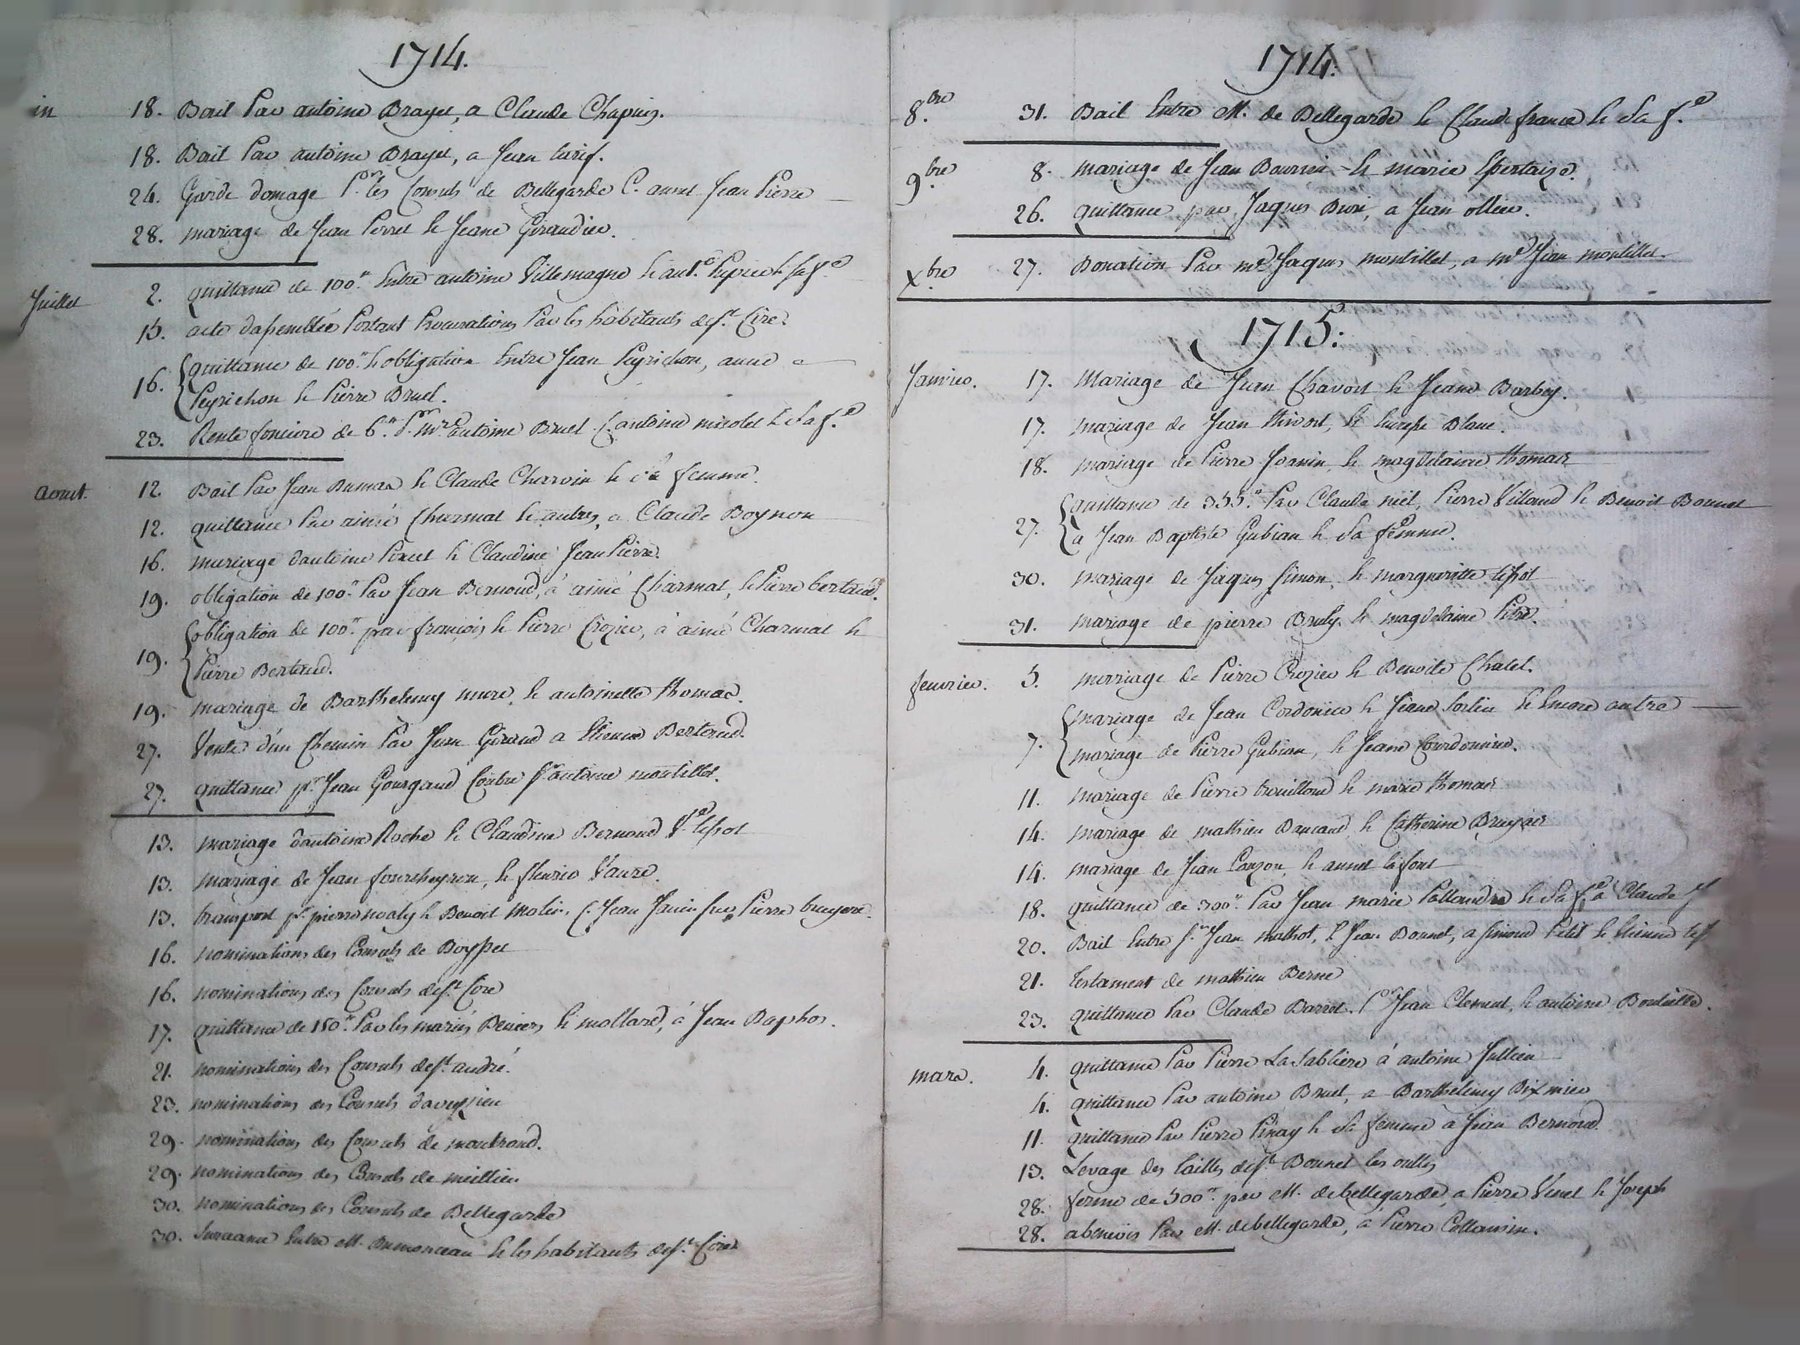 1714.
in 18. Bail par antoine Brayet, a Claude Chapuis.
18. Bail par antoine Brayet, a Jean
24. Garde domage pr. les Consuls de Bellegarde C. annet Jean Pierre
28. mariage de Jean Perret & Jeane Giraudier.
Juillet 2. quittance de 100.tt Entre antoine Villemagne
15. acte dassemblée Portant Procurations Par les habitants de St. Cire.
16. quittance de 100.tt & obligation Entre Jean Peyrichon, anne
Peyrichon & Pierre Bruel.
23. Rente fonciere de 6.tt pr. Mr. antoine Bruel C. antoine micolet & Sa fe.
aoust. 12. Bail Par Jean Dumas & Claude Charvin & sa femme.
12. quittance Par aimé Charmat & autres, a Claude Boynon
16. mariage dantoine Pincet & Claudine Jean Pierre
19. obligation de 100.tt Par Jean Bernoud, à aimé Charmat, & Pierre Bertaud.
19. obligation de 100.tt par francois & Pierre Crozier, à aimé Charmat &
Pierre Bertaud.
19. mariage de Barthelemy mure, & antoinette thomas.
27. Vente d'un Chemin Par Jean Giraud a Etienne Bertaud.
27. quittance pr. Jean Gourgaud Contre Sr. antoine montillet.
13. mariage dantoine Roche & Claudine Bernoud
13. mariage de Jean fourcheyron, & fleurie Faure.
13. transport pr. pierre & Benoit Molin, C. Jean Janin Pierre bruyere.
16. nominations des Consuls de Boysset
16. nominations des Consuls de St. Cire
17. quittance de 150.tt Par les mariés & mollard, à Jean Baptos.
21. nominations des Consuls de St. andré.
23. nominations des Consuls daveysieu
29. nominations des Consuls de montrond.
29. nominations des Consuls de meillieu
30. nominations des Consuls de Bellegarde
30. Entre M. Dumonceau & les habitants de St. Cire
1714.
8.bre 31. Bail Entre M. de Bellegarde & Claude france & Sa fe.
9.bre 8. mariage de Jean Bournin & marie
26. quittance par Jaques a Jean ollier.
X.bre 27. Donation Par me. Jaques montillet, a me. Jean montillet.
1715.
Janvier. 17. Mariage de Jean Chavort & Jeane Barbey.
17. mariage de Jean thivort, & Blanc.
18. mariage de Pierre Jannin & magdelaine thomas
27. quittance de 355.tt Par Claude niel, Pierre Villand & Benoit Bonnet
a Jean Baptiste Gubian & Sa femme.
30. mariage de Jaques Simon, & margueritte
31. mariage de pierre Bruly & magdelaine
fevrier. 5. mariage de Pierre Crozier & Benoite Chatel.
7. mariage de Jean Cordonier & Jeane & Encore autre
mariage de Pierre Gubian, & Jeane Courdonnier.
11. mariage de Pierre trouilloud & marie thomas
14. mariage de mathieu & Catherine Bruyas
14. mariage de Jean & annet lafont
18. quittance de 300.tt Par Jean marie Pallandre & Sa fe. a Claude
20. Bail Entre Sr. Jean mathot, & Jean Bonnet, a Simond Petit & Etienne
21. testament de mathieu Berne
23. quittance Par Claude Barrot, C. Jean Clement, & antoine Bouteille.
mars. 4. quittance Par Pierre La Sabliere à antoine Jullien
4. quittance Par antoine Bruel, a Barthelemy Diximier
11. quittance Par Pierre Pinay & Sa femme à Jean Bernoud.
13. Levage des tailles de St. Bonnet les oulles
28. ferme de 500.tt par M. de bellegarde, a Pierre Venet & Joseph
28. abenevis Par M. de bellegarde, à Pierre Collaurin.